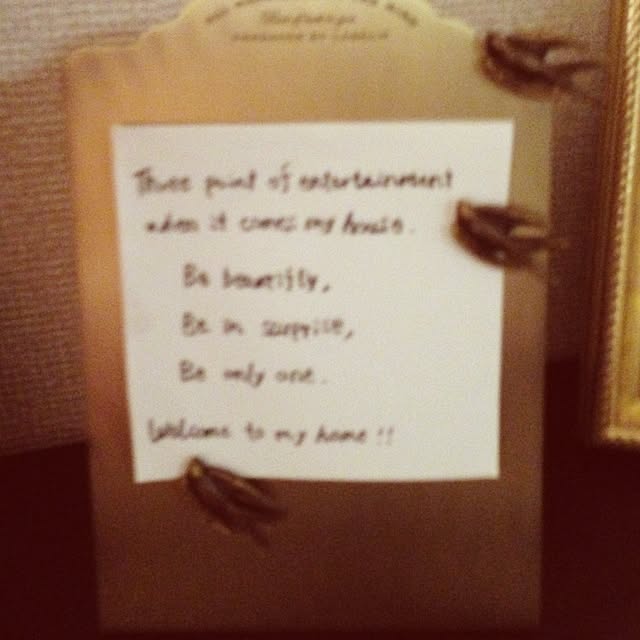 Three point of entertainment
when it comes my house.
Be beautifly,
Be in surprise,
Be only one.
Welcome to my home!!